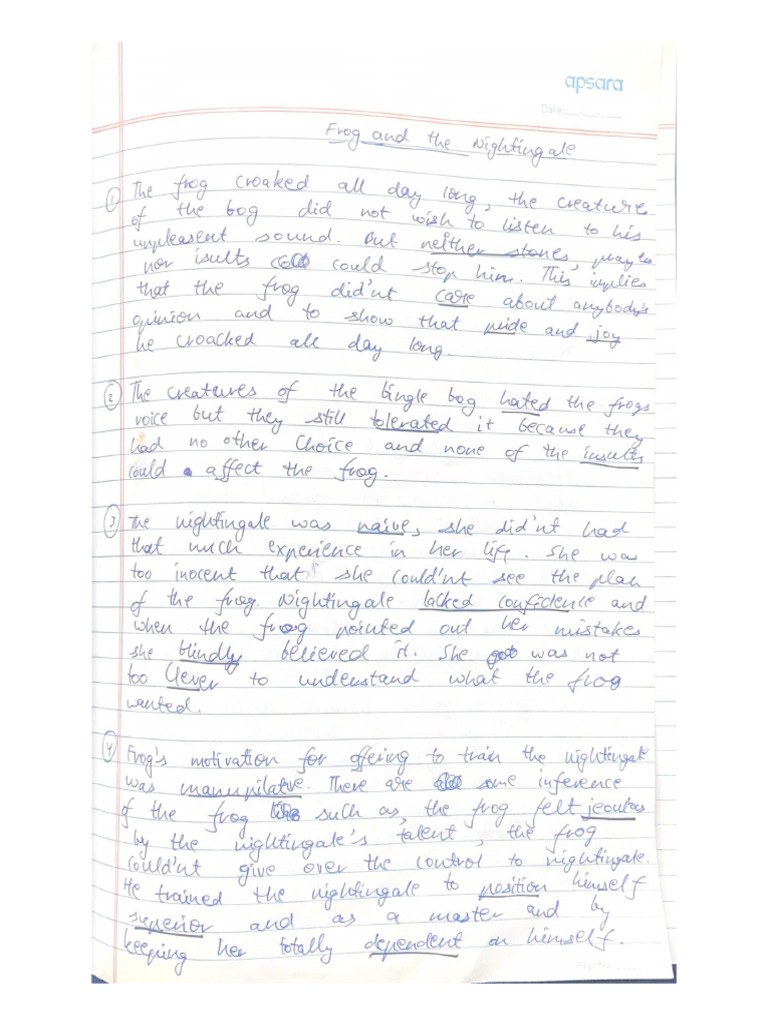 apsara
Date:
Frog and the Nightingale
① The frog croaked all day long, the creature
of the bog did not wish to listen to his
unpleasent sound. But neither stones, prayers
nor isults could stop him. This implies
that the frog did'nt care about anybody's
opinion and to show that pride and joy
he croacked all day long.
② The creatures of the bingle bog hated the frogs
voice but they still tolerated it because they
had no other choice and none of the insults
could affect the frog.
③ The nightingale was naive, she did'nt had
that much experience in her life. She was
too inocent that she could'nt see the plan
of the frog. Nightingale lacked confidence and
when the frog pointed out her mistakes
she blindly believed it. She was not
too Clever to understand what the frog
wanted.
④ Frog's motivation for offering to train the nightingale
was manupilative. There are some inference
of the frog such as, the frog felt jeoulas
by the nightingale's talent, the frog
could'nt give over the control to nightingale.
He trained the nightingale to position himself
superior and as a master and by
keeping her totally dependent on himself.